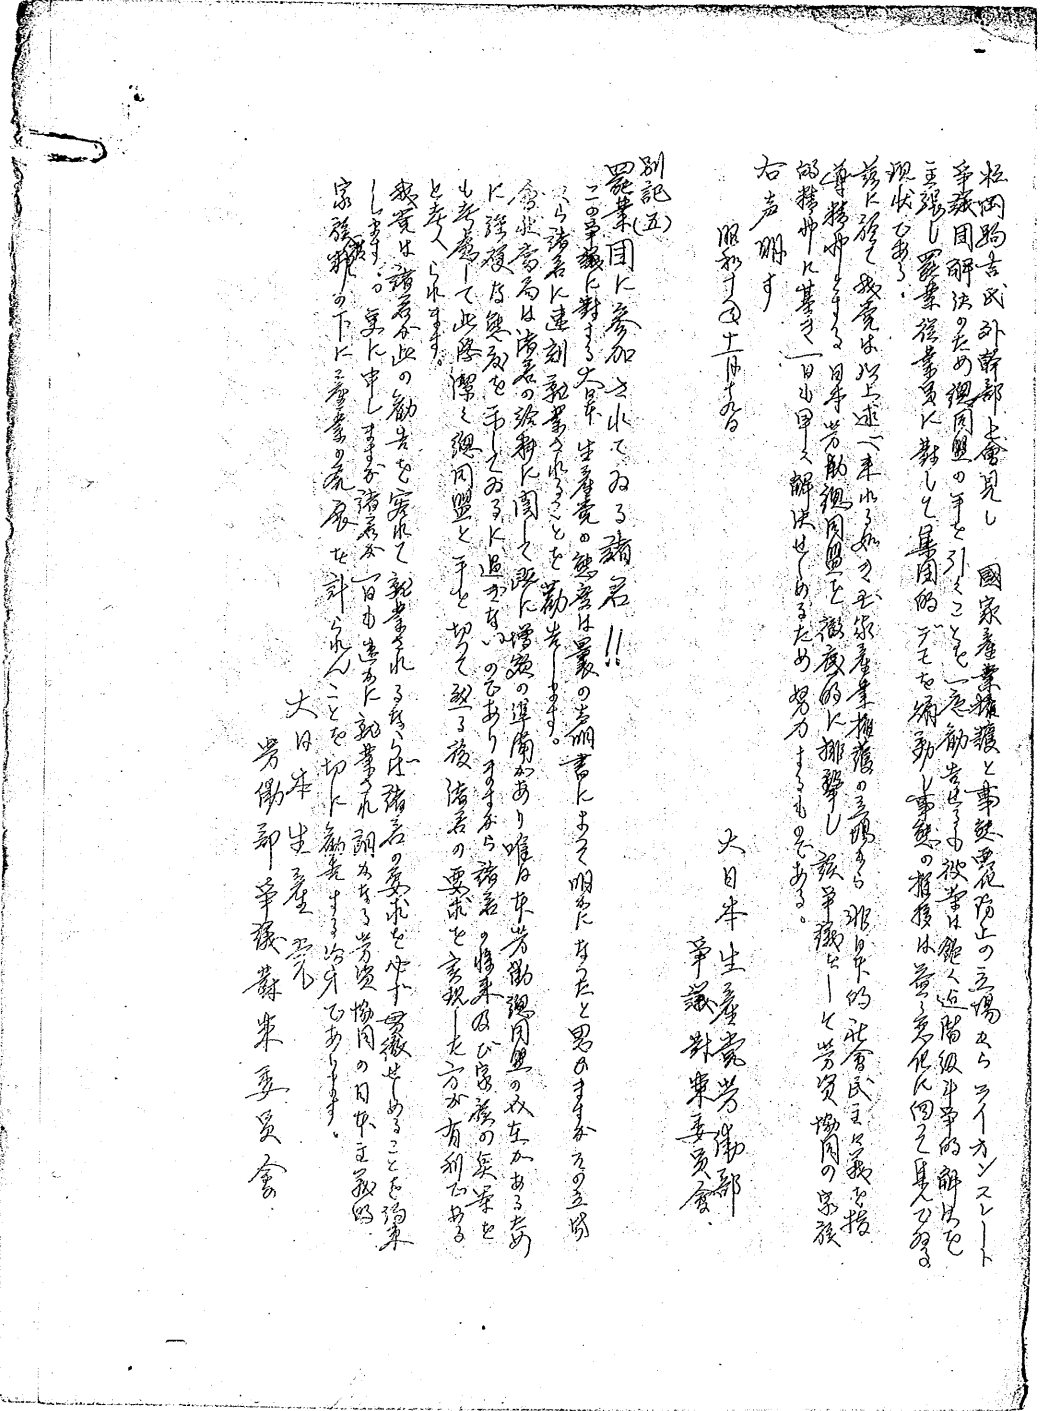 松岡駒吉氏外幹部と會見し 國家産業擁護と事態悪化防止の立場からライオンスレート
争議団解決のため総同盟の手を引くことを一応勧告せるも彼等は飽く迄階級斗争的解決を
主張し罷業従業員に対して集団的デモを煽動し事態の推移は益々悪化に向って進んでゐる
現状である。
茲に於て我党は以上述べ来れる如き国家産業擁護の立場から非日本的社會民主々義を指
導精神とする日本労働総同盟を徹底的に排撃し該争議をして労資協同の家族
的精神に基き一日も早く解決せしめるため努力するものである。
右声明す
昭和十年十一月十九日
大日本生産党労働部
争議対策委員會
別記(五)
罷業団に参加されてゐる諸君!!
この争議に対する大日本生産党の態度は曩の声明書によって明かになったと思ひますがその立場
から諸君に速刻就業されることを勧告します。
會社当局は諸君の給料に関して既に増額の準備があり唯日本労働総同盟の介在があるため
に強硬な態度を示してゐるに過ぎないのでありますから諸君の将来及び家族の生活を
も考慮して此際潔く総同盟と手を切って然る後諸君の要求を実現した方が有利である
と考へられます。
我党は諸君が此の勧告を容れて就業されるならば諸君の要求を必ず貫徹せしめることを約束
します。更に申しますが諸君が一日も速かに就業され朗かなる労資協同の日本主義的
家族精神の下に産業の発展を計られんことを切に勧告する次第であります。
大日本生産党
労働部争議対策委員會